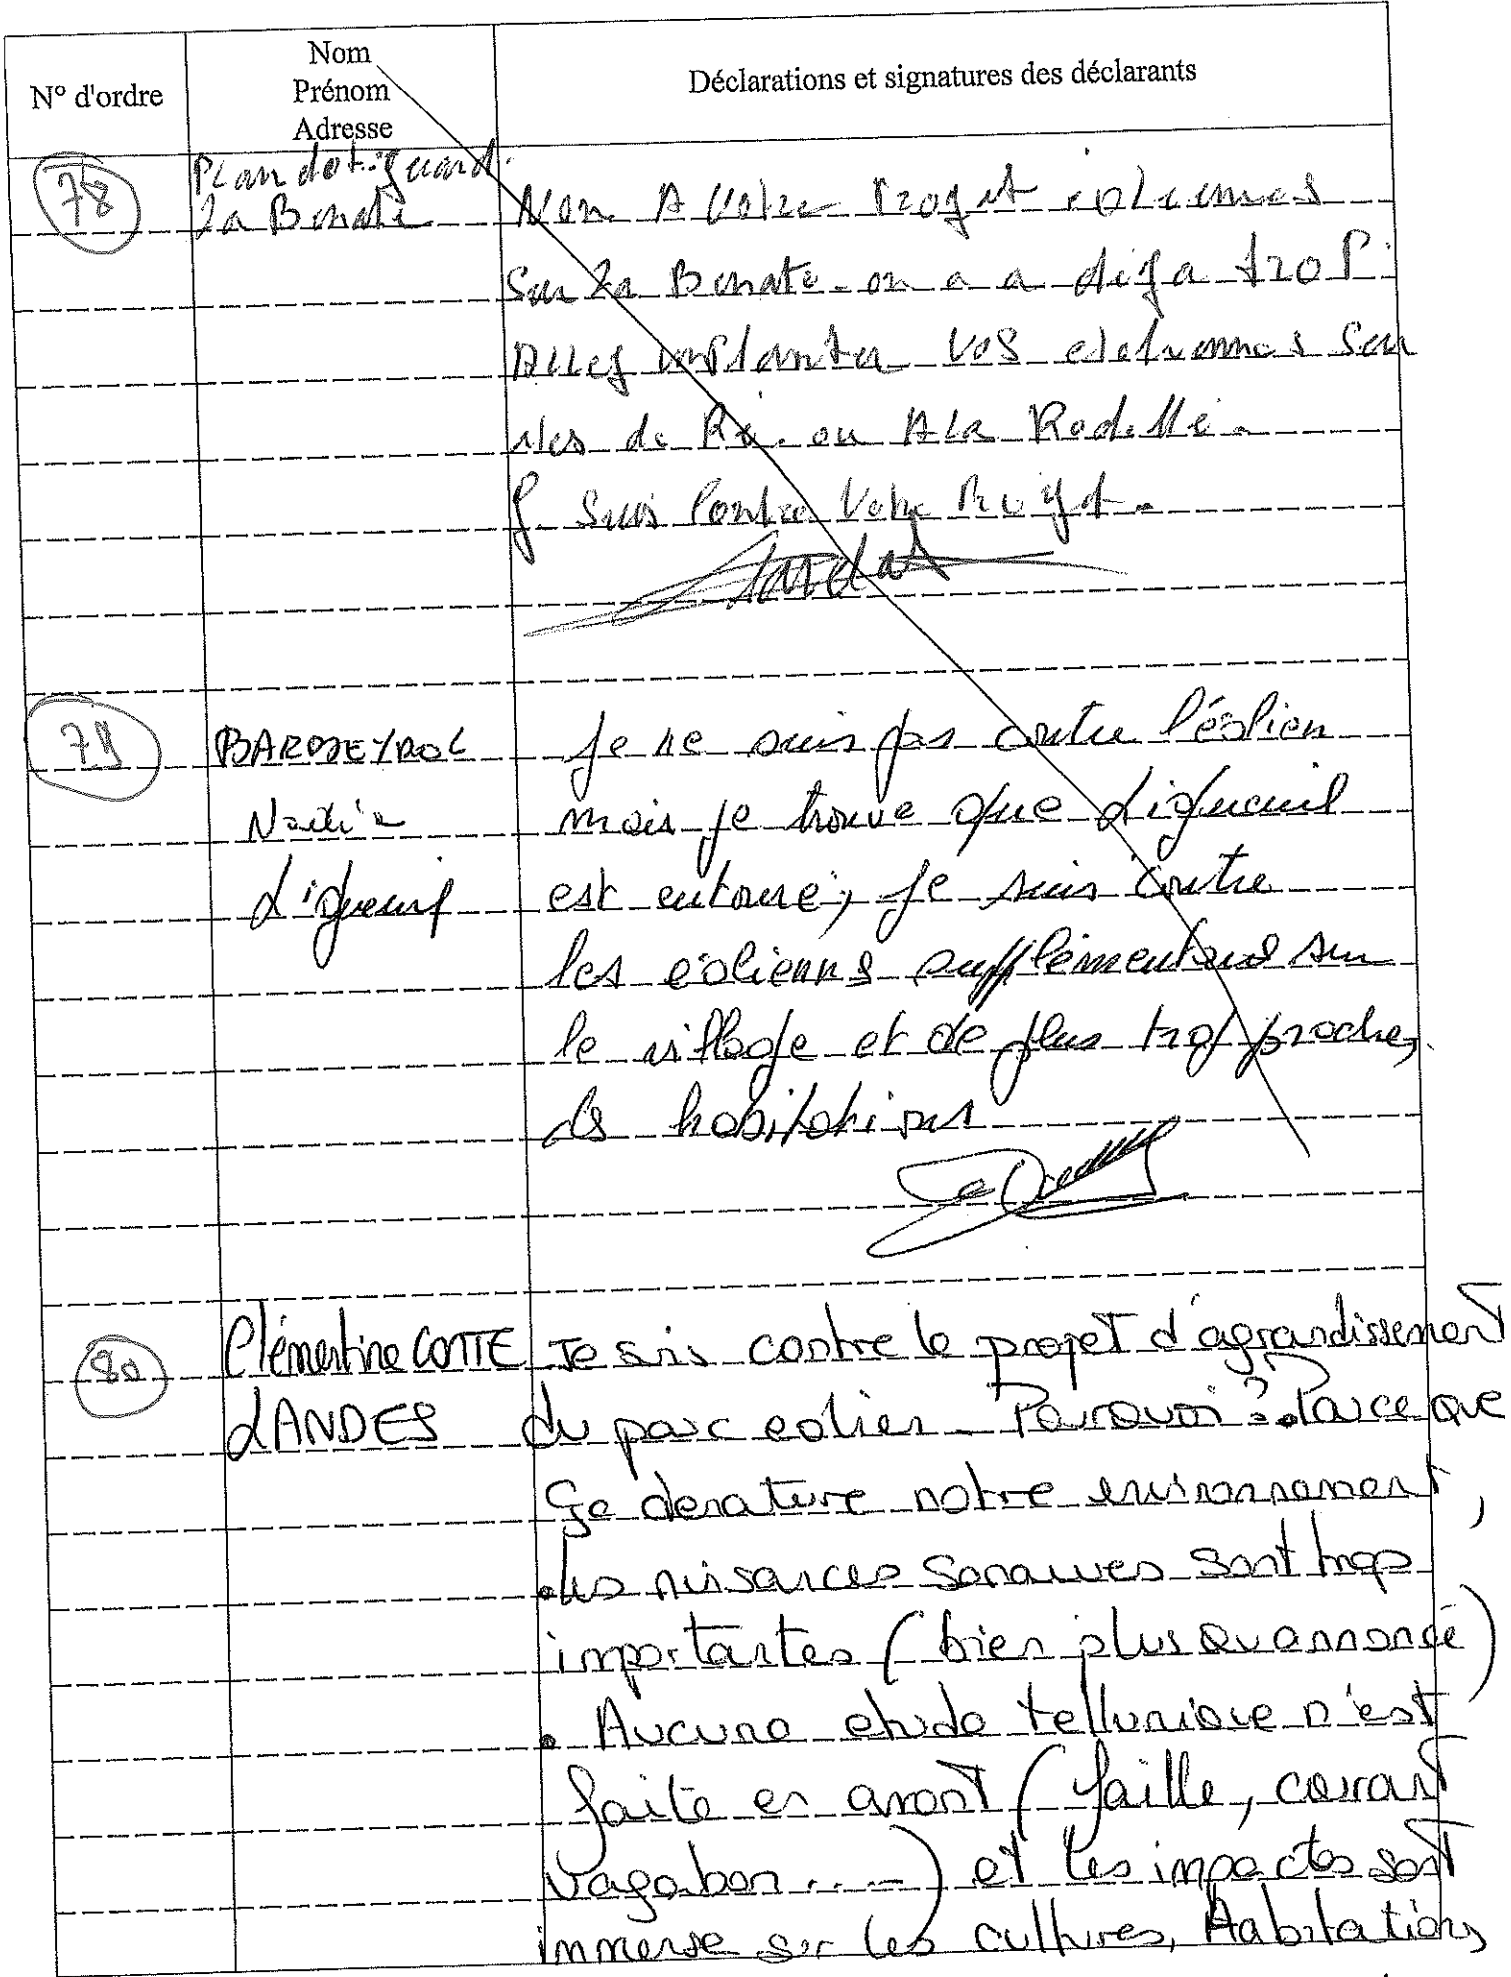 N° d'ordre
Nom
Prénom
Adresse
Déclarations et signatures des déclarants
78
la Benate
Non A Votre Projet éoliennes
Sur la Benate on a a dija troP
Allez implanter VoS sur
iles de Ré ou A La Rochelle.
Je Suis Contre Votre Projet.
79
Nadia
Ligueuil
Je ne suis pas contre l'éolien
mais je trouve que Ligueuil
est entouré, je suis contre
les éoliennes supplémentaires sur
le village et de plus trop proches
des habitations
80
Clémentine CONTE
LANDES
Je suis contre le projet d'agrandissement
du parc eolien. Pourquoi ? Parce que
Ça denature notre environnement,
. les nuisances sonores sont trops
importantes (bien plus qu annoncé)
. Aucune etude tellurique n'est
faite en avant (faille, courant
vagabon....) et les impactes sont
immense sur les cultures, Habitations,